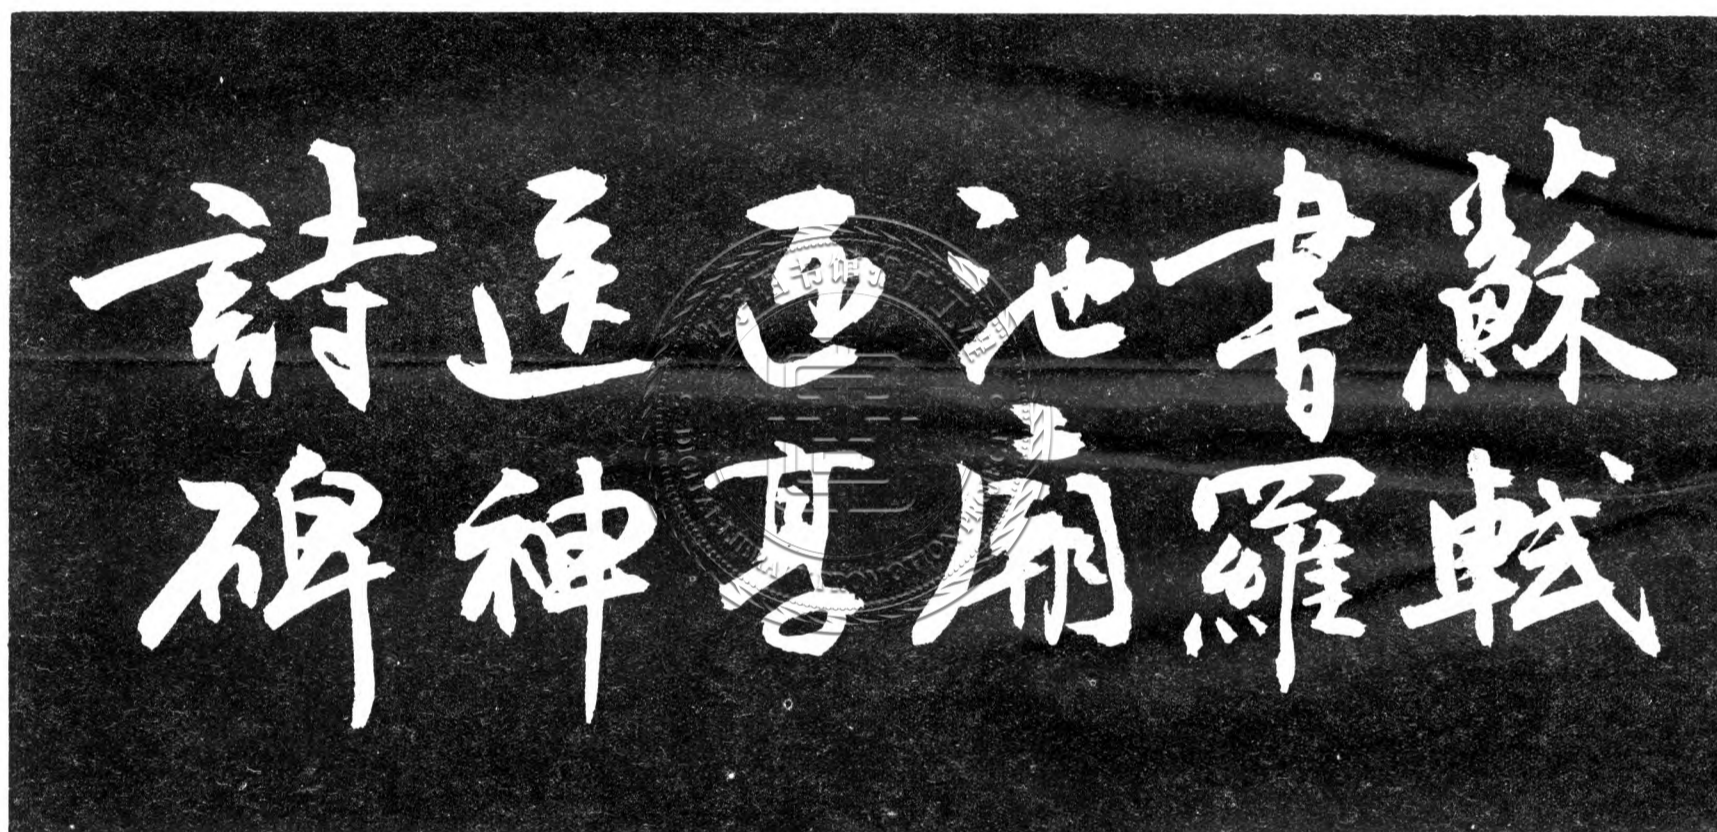 蘇軾
書羅
池廟
迎享
送神
詩碑